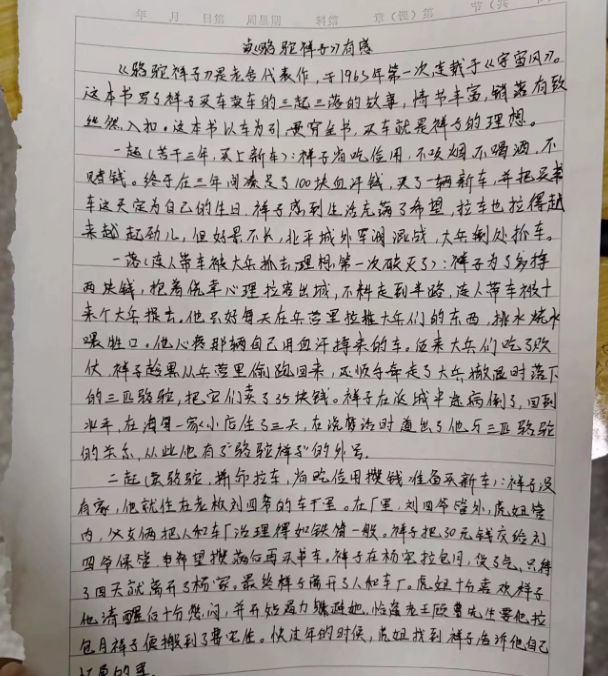 年 月 日第 周星期 科第 章(课)第 节(共
读《骆驼祥子》有感
《骆驼祥子》是老舍代表作,于1965年第一次连载于《宇宙风》。
这本书写了祥子买车卖车的三起三落的故事,情节丰富,错落有致
丝丝入扣。这本书以车为引,贯穿全书,买车就是祥子的理想。
一起(苦干三年,买上新车):祥子省吃俭用,不吸烟不喝酒,不
赌钱。终于在三年间凑足了100块血汗钱,买了一辆新车,并把买
车这天定为自己的生日,祥子感到生活充满了希望,拉车也拉得越
来越起劲儿,但好景不长,北平城外军阀混战,大兵到处抓车。
一落(连人带车被大兵抓去,理想第一次破灭了):祥子为了多挣
两块钱,抱着侥幸心理拉客出城,不料走到半路,连人带车被十
来个大兵捉去。他只好每天在兵营里拉推大兵们的东西,挑水烧水
喂牲口。他心疼那辆自己用血汗挣来的车。后来大兵们吃了败
仗,祥子趁黑从兵营里偷跑回来,还顺手牵走了大兵撤退时落下
的三匹骆驼,把它们卖了35块钱。祥子在返城半途病倒了,回到
北平,在海甸一家小店住了三天,在说梦话时道出了他与三匹骆驼
的关系,从此他有了"骆驼祥子"的外号。
二起(卖骆驼,拼命拉车,省吃俭用攒钱准备买新车):祥子没
有家,他就住在老板刘四爷的车厂里。在厂里,刘四爷管外,虎妞管
内,父女俩把人和车厂治理得如铁管一般。祥子把30元钱交给刘
四爷保管,希望攒满后再买车。祥子在杨家拉包月,受了气,只待
了四天就离开了杨家。最终祥子离开了人和车厂。虎妞十分喜欢祥子
他清醒后十分 闷,并开始 力躲避她。恰逢老主顾曹先生要他拉
包月祥子便搬到了曹宅住。快过年的时候,虎妞找到祥子告诉他自己